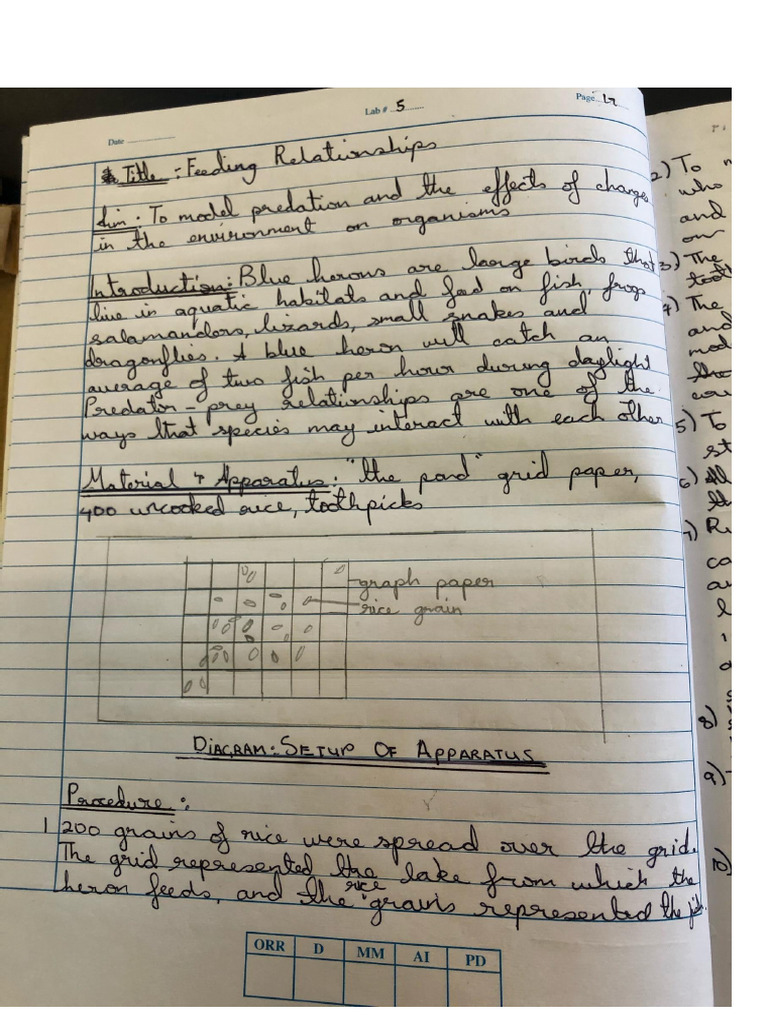 Lab # 5
Page 17
Date
Title: Feeding Relationships
Aim: To model predation and the effects of changes
in the environment on organisms
Introduction: Blue herons are large birds that
live in aquatic habitats and feed on fish, frogs
salamandors, lizards, small snakes and
dragonflies. A blue heron will catch an
average of two fish per hour during daylight
Predator-prey relationships are one of the
ways that species may interact with each other
Material & Apparatus: "the pond" grid paper,
400 uncooked rice, toothpicks
graph paper
rice grain
DIAGRAM: SETUP OF APPARATUS
Procedure:
1 200 grains of rice were spread over the grid.
The grid represented the lake from which the
heron feeds, and the rice grains represented the fish.
ORR D MM AI PD
2) To
who
and
on
3) The
4) The
and
mod
5) To
st
6) All
7) R
ca
8)
9)
10)